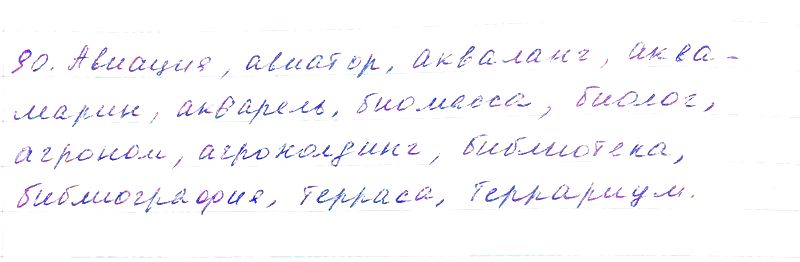 90. Авиация, авиатор, акваланг, аква-
марин, акварель, биомасса, биолог,
агроном, агрохолдинг, библиотека,
библиография, терраса, террариум.